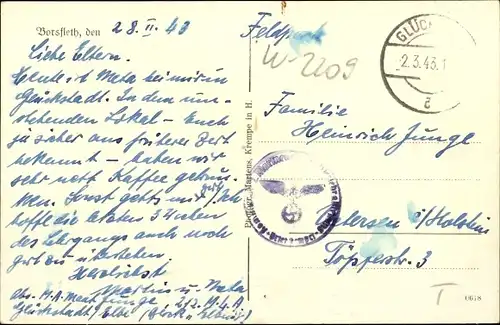 Borsfleth, den 28.II.43
Liebe Eltern.
Heute ist Meta bei mir in
Glückstadt. In dem um-
stehenden Lokal - Euch
ja sicher aus früherer Zeit
bekannt - haben wir
sehr nett Kaffee getrun-
ken. Sonst geht's mir gut. Ich
hoffe die letzten 3 Wochen
des Lehrgangs auch noch
gut zu überstehen.
Herzlichst
Martin u. Meta
Abs. M.A. Mart Junge 2/2. M.E.A.
Glückstadt/Elbe
Martens, Krempe in H.
Feldpost
W-2209
GLÜCK
2.3.43.1
a
Familie
Heinrich Junge
Uetersen i/Holstein
Töpferstr. 3
T
0678